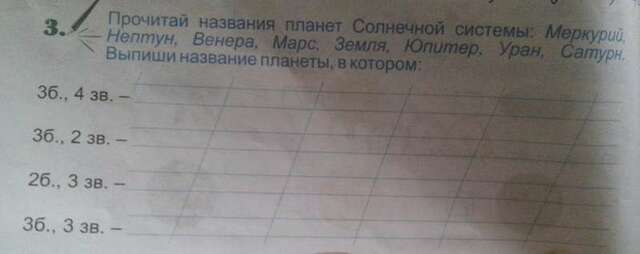 3. Прочитай названия планет Солнечной системы: Меркурий,
Нептун, Венера, Марс, Земля, Юпитер, Уран, Сатурн.
Выпиши название планеты, в котором:
3б., 4 зв. –
3б., 2 зв. –
2б., 3 зв. –
3б., 3 зв. –